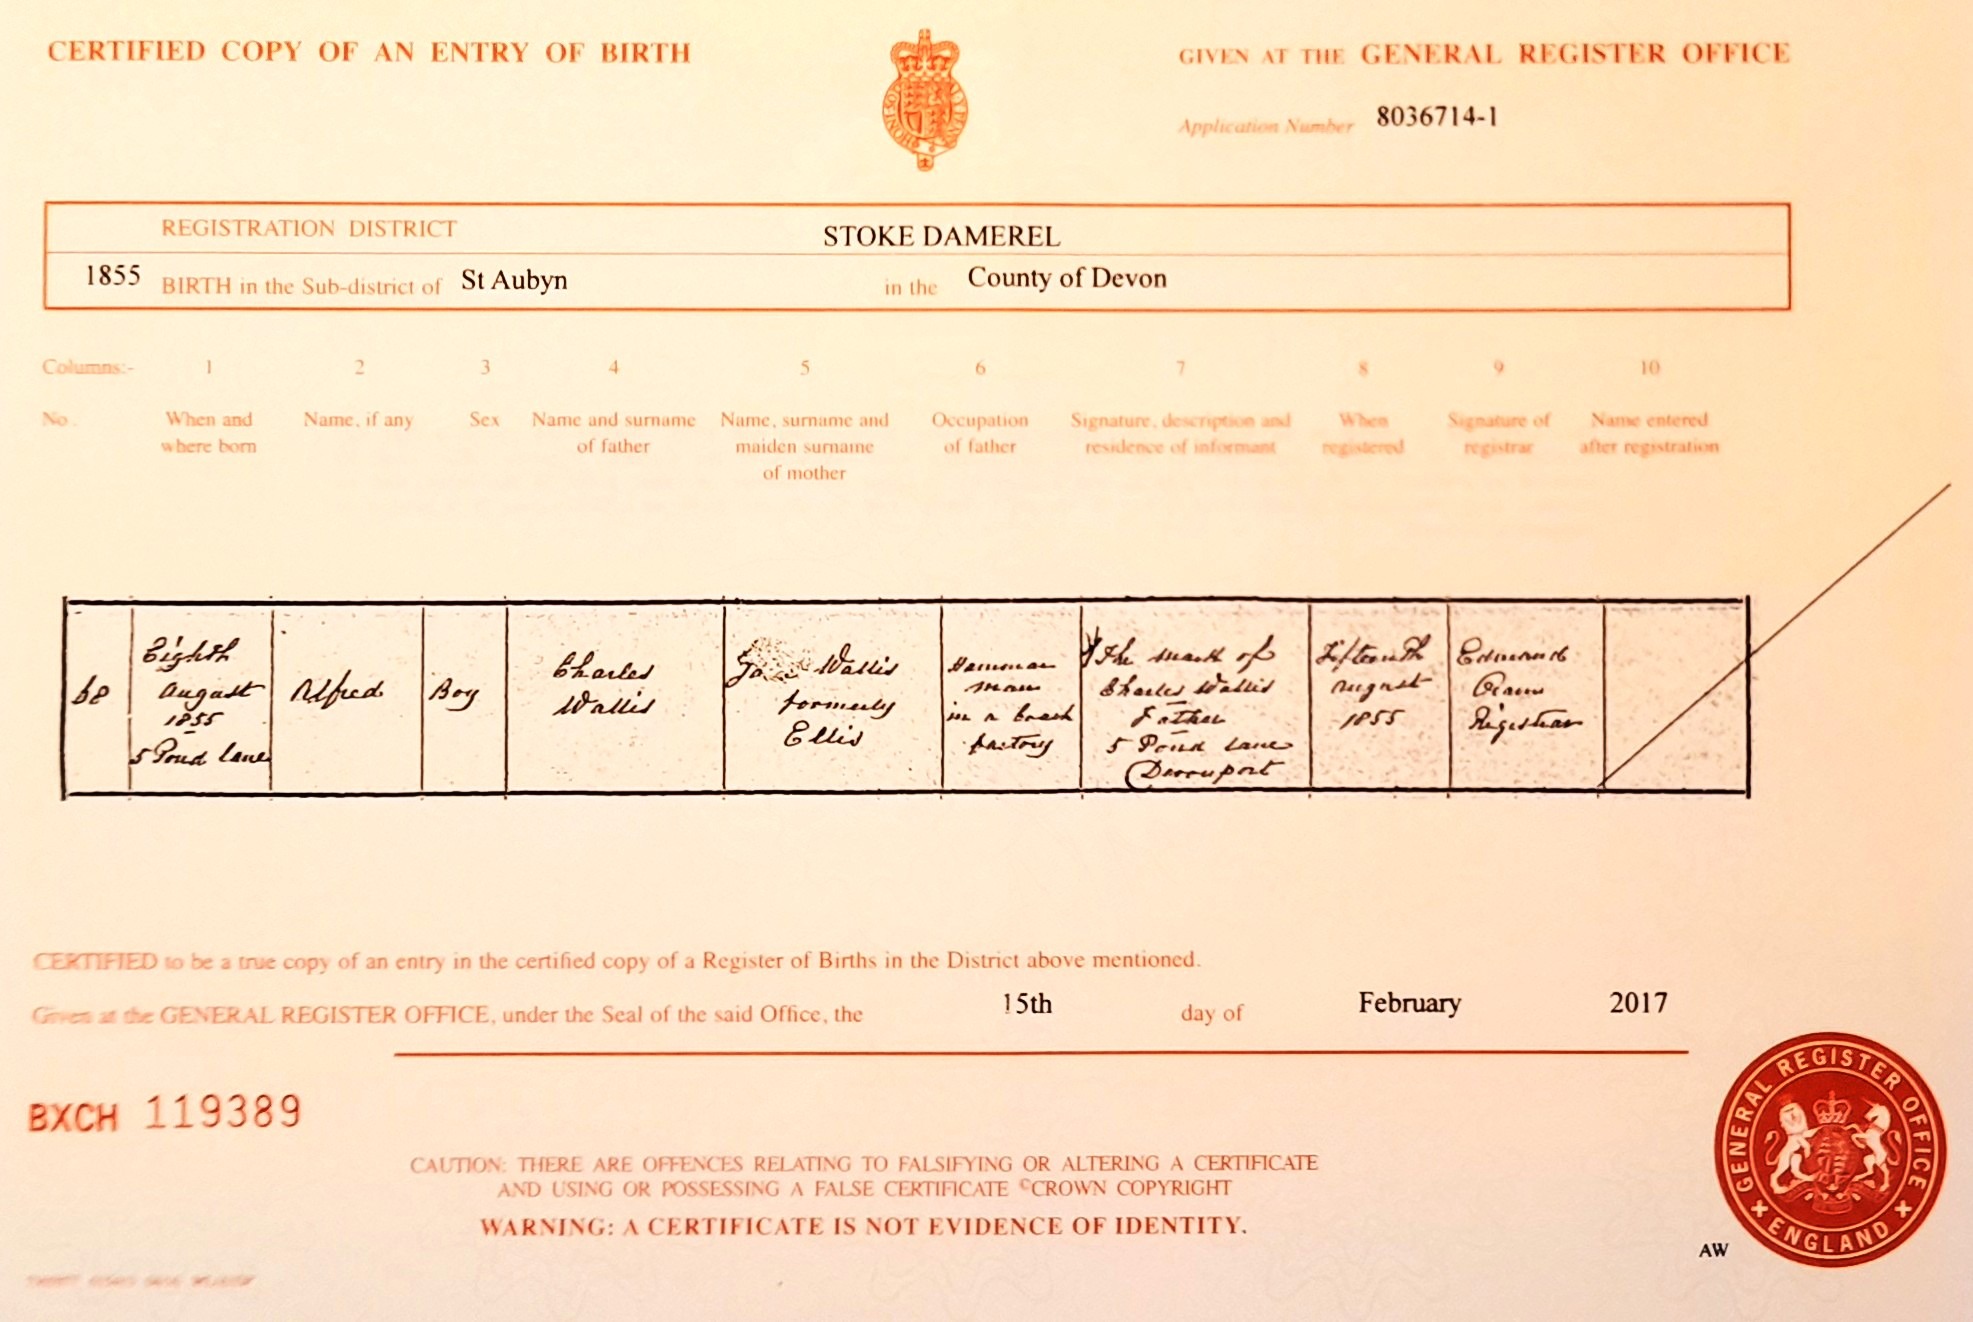 CERTIFIED COPY OF AN ENTRY OF BIRTH
GIVEN AT THE GENERAL REGISTER OFFICE
Application Number 8036714-1
REGISTRATION DISTRICT STOKE DAMEREL
1855 BIRTH in the Sub-district of St Aubyn in the County of Devon
Columns:- 1 2 3 4 5 6 7 8 9 10
No. When and where born
Name, if any
Sex
Name and surname of father
Name, surname and maiden surname of mother
Occupation of father
Signature, description and residence of informant
When registered
Signature of registrar
Name entered after registration
68
Eighth
August
1855
5 Pond Lane
Alfred
Boy
Charles
Wallis
Wallis
formerly
Ellis
man
in a
factory
X The mark of
Charles Wallis
Father
5 Pond Lane
Devonport
Fifteenth
August
1855
Edmund
Registrar
CERTIFIED to be a true copy of an entry in the certified copy of a Register of Births in the District above mentioned.
Given at the GENERAL REGISTER OFFICE, under the Seal of the said Office, the 15th day of February 2017
BXCH 119389
CAUTION: THERE ARE OFFENCES RELATING TO FALSIFYING OR ALTERING A CERTIFICATE
AND USING OR POSSESSING A FALSE CERTIFICATE ©CROWN COPYRIGHT
WARNING: A CERTIFICATE IS NOT EVIDENCE OF IDENTITY.
GENERAL REGISTER OFFICE
ENGLAND
AW